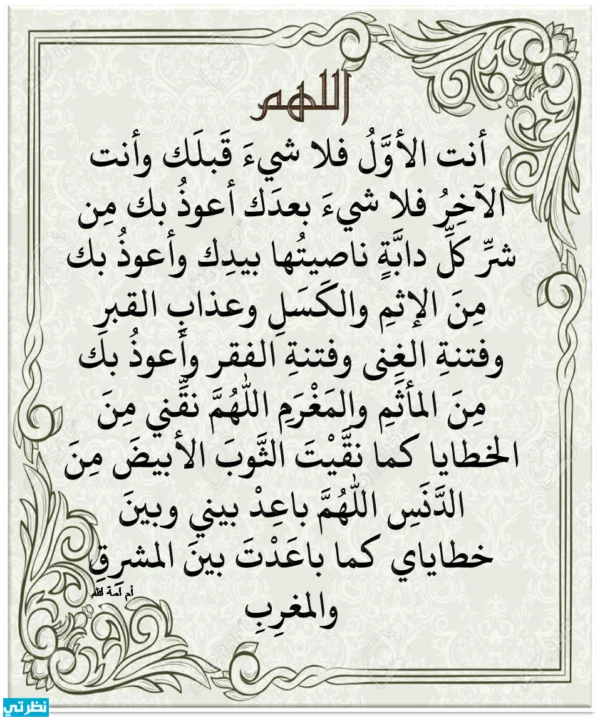 اللهم
أنت الأوَّلُ فلا شيءَ قَبلَك وأنت
الآخِرُ فلا شيءَ بعدَك أعوذُ بك مِن
شرِّ كلِّ دابَّةٍ ناصيتُها بيدِك وأعوذُ بك
مِنَ الإثمِ والكَسَلِ وعذابِ القبرِ
وفتنةِ الغِنى وفتنةِ الفقر وأعوذُ بك
مِنَ المأثَمِ والمَغْرَمِ اللهُمَّ نقِّني مِنَ
الخطايا كما نقَّيْتَ الثَّوبَ الأبيضَ مِنَ
الدَّنَسِ اللهُمَّ باعِدْ بيني وبينَ
خطاياي كما باعَدْتَ بينَ المشرِقِ
والمغرِبِ
أم أمة الله
نظرتي